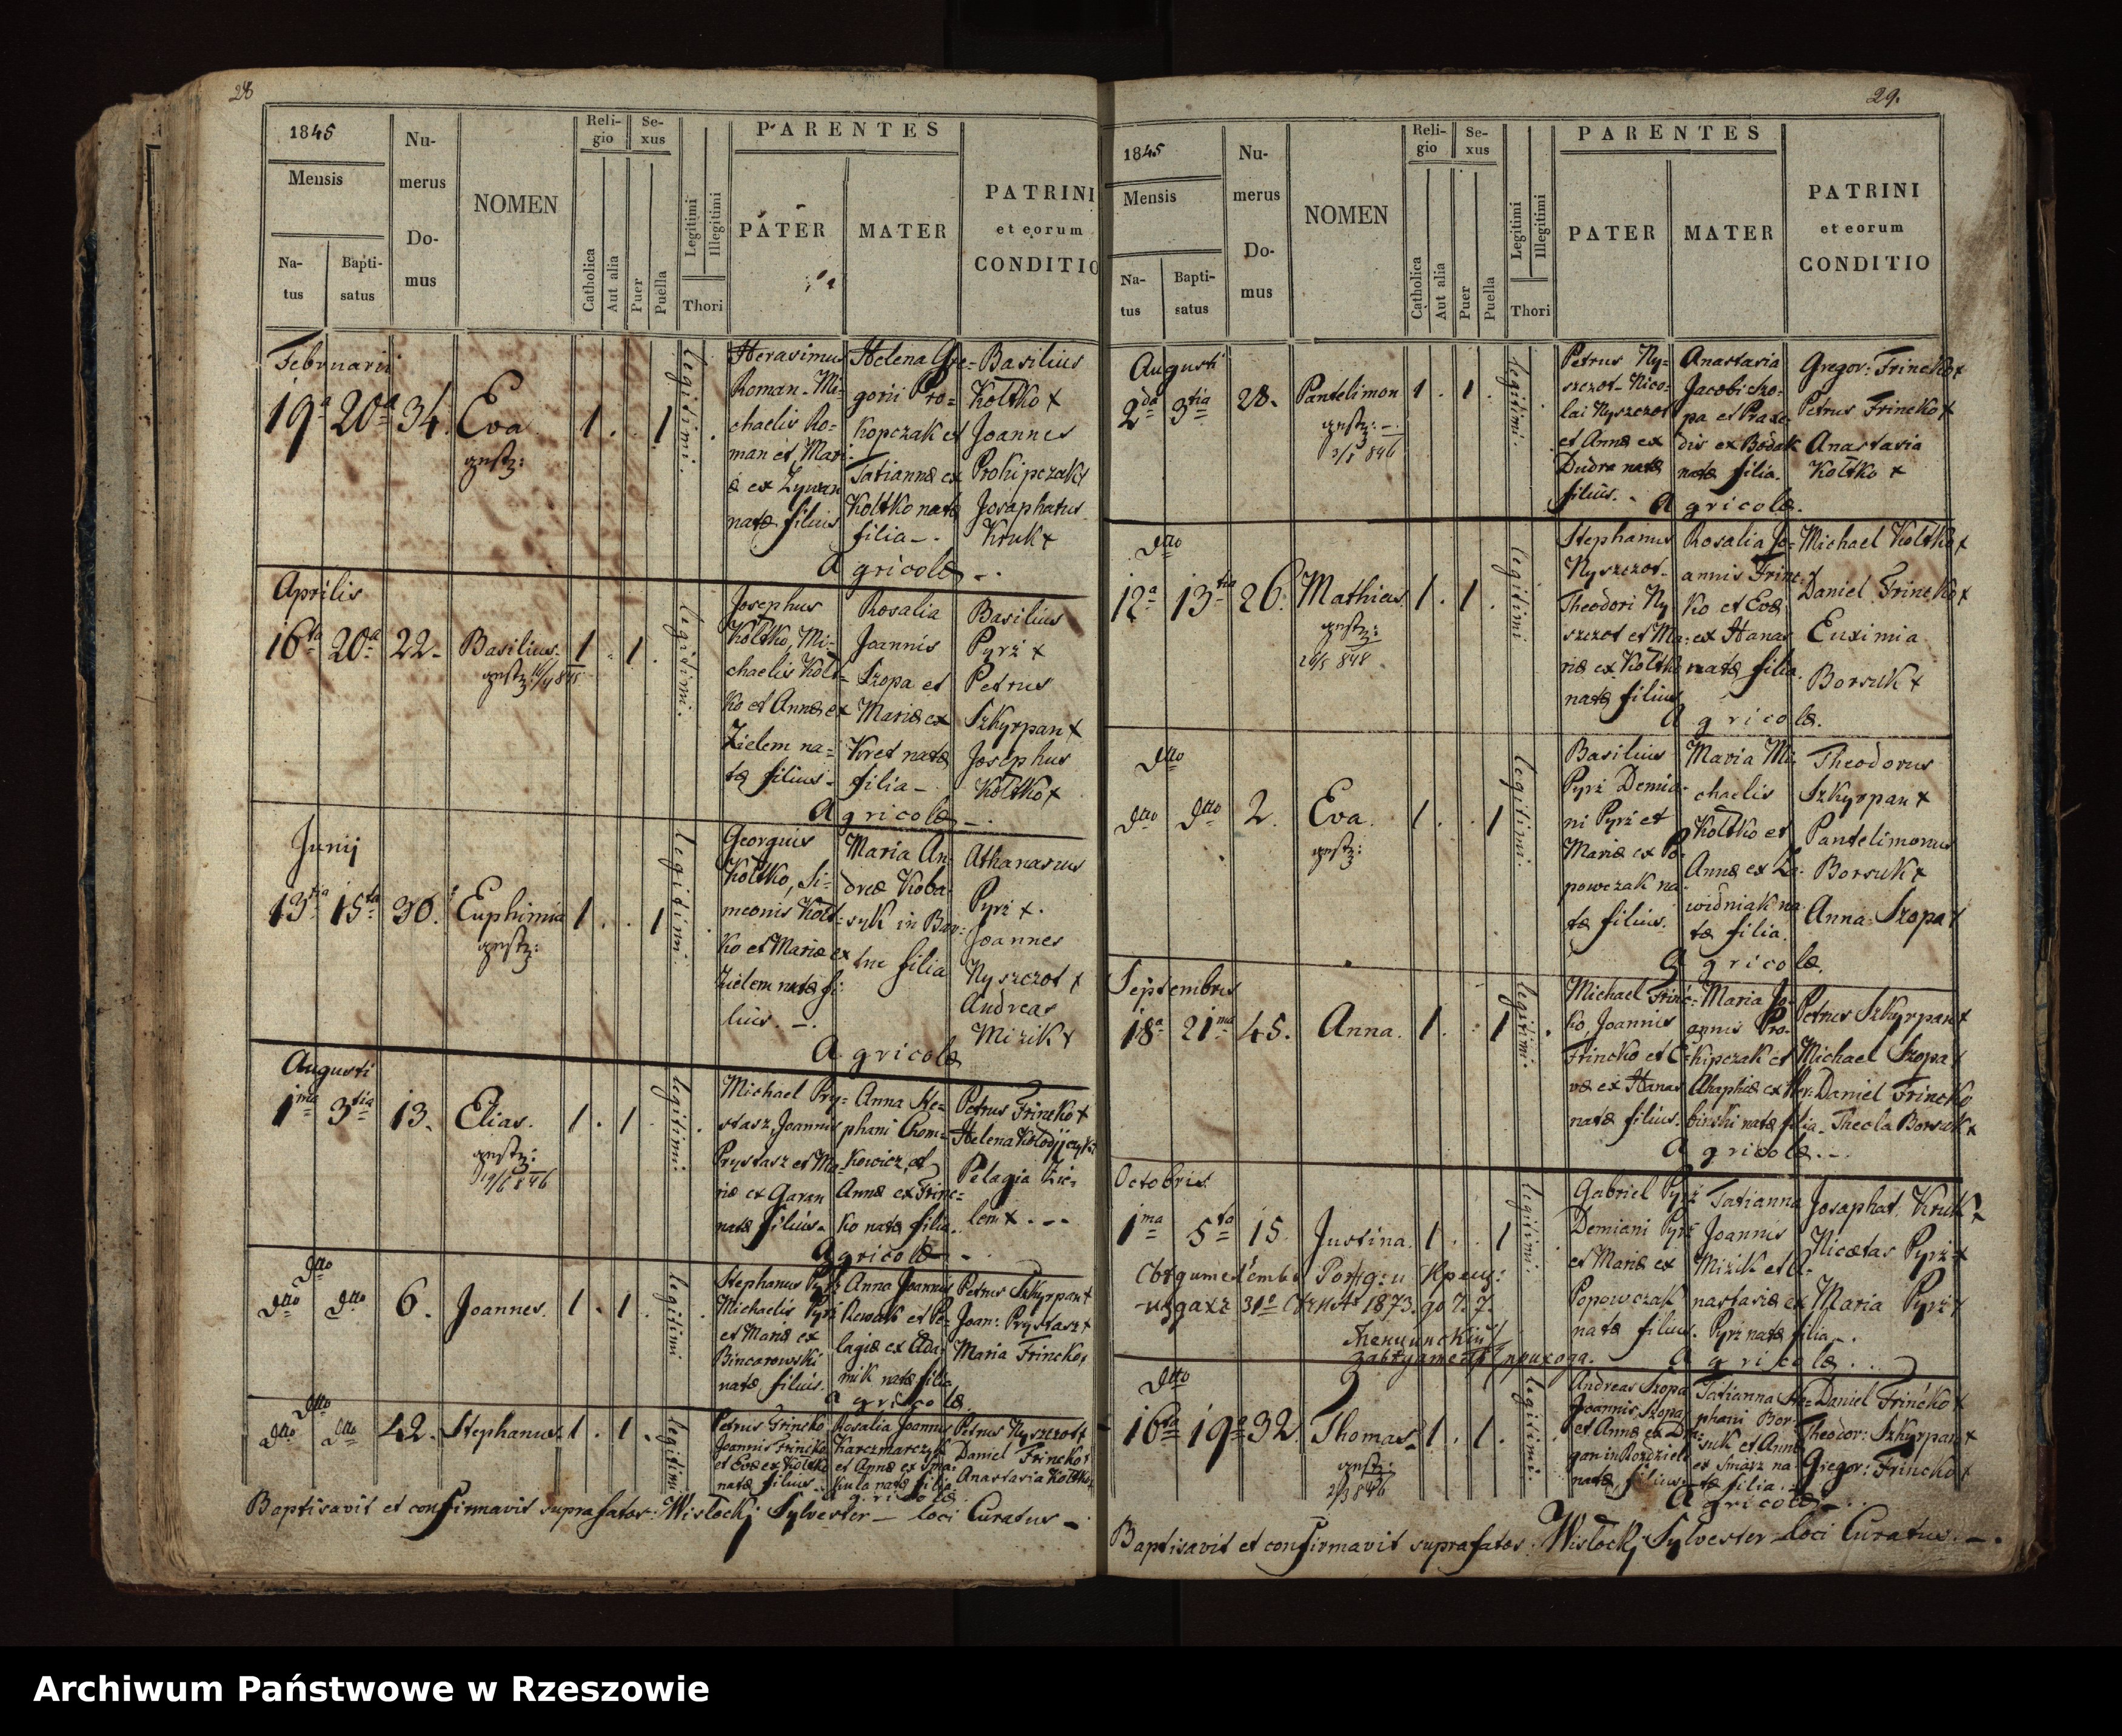 28
1845
Mensis
Na-
tus
Bapti-
satus
Nu-
merus
Do-
mus
NOMEN
Reli-
gio
Catholica
Aut alia
Se-
xus
Puer
Puella
Legitimi
Illegitimi
Thori
PARENTES
PATER
MATER
PATRINI
et eorum
CONDITIO
Februarii
19a 20a 34. Eva 1. 1
legitimi.
Herasimus
Roman Mi-
chaelis Ro-
man et Mari-
æ ex Zywan
natæ filius
Helena Gre-
gorii Pro-
kopczak et
Tatiannæ ex
Koltko natæ
filia -.
Basilius
Koltko +
Joannes
Prokipczak +
Josaphatus
Kruk +
Agricolæ -.
Aprilis
16ta 20a 22. Basilius. 1. 1.
legitimi.
Josephus
Koltko, Mi-
chaelis Kolt-
ko et Annæ ex
Zielem na-
tæ filius.
Rosalia
Joannis
Szopa et
Mariæ ex
Kret natæ
filia -
Basilius
Pyrż +
Petrus
Szkyrpan +
Josephus
Koltko +
Agricolæ -.
Junij
13tia 15ta 30. Euphimia 1. . 1
legitimi.
Georgius
Koltko, Si-
meonis Kolt-
ko et Mariæ ex
Zielem natæ fi-
lius. -.
Maria An-
dreæ Koba-
syk in Bar-
tne filia
Athanasius
Pyrż +.
Joannes
Nyszczot +
Andreas
Mizik +
Agricolæ
Augusti
1ma 3tia 13. Elias. 1. 1.
legitimi.
Michael Pry-
stasz, Joannis
Prystasz et Ma-
riæ ex Garan
natæ filius.
Anna Ste-
phani Chom-
kowicz, et
Annæ ex Frinc-
ko natæ filia.
Petrus Frincko +
Helena Kołodijczyk +
Pelagia Zie-
lem +. --
Agricolæ -
dtto
dtto dtto 6. Joannes. 1. 1.
legitimi
Stephanus Pyrż
Michaelis Pyrż
et Mariæ ex
Bincarowski
natæ filius.
Anna Joannis
Kowak et Pe-
lagiæ ex Ada-
mik natæ filia
Petrus Szkyrpan +
Joan: Prystasz +
Maria Frincko +
Agricolæ.
dtto
dtto dtto 42. Stephanus. 1. 1.
legitimi
Petrus Frincko
Joannis Frincko
et Evæ ex Koltko
natæ filius.
Rosalia Joannis
Karczmarczyk
et Annæ ex Sma-
kula natæ filia
Petrus Nyszczot +
Daniel Frincko +
Anastasia Koltko +
Agricolæ
Baptisavit et confirmavit suprafatos: Wislocki Sylvester - loci Curatus -
29.
1845
Mensis
Na-
tus
Bapti-
satus
Nu-
merus
Do-
mus
NOMEN
Reli-
gio
Catholica
Aut alia
Se-
xus
Puer
Puella
Legitimi
Illegitimi
Thori
PARENTES
PATER
MATER
PATRINI
et eorum
CONDITIO
Augusti
2da 3tia 28. Pantelimon 1. 1.
legitimi.
Petrus Ny-
szczot Nico-
lai Nyszczot
et Annæ ex
Dudra natæ
filius. -
Anastasia
Jacobi Szo-
pa et Praxe-
dis ex Bodak
natæ filia.
Gregor: Frincko +
Petrus Frincko +
Anastasia
Koltko +
Agricolæ.
dtto
12a 13tia 26. Mathias. 1. 1.
legitimi
Stephanus
Nyszczot
Theodori Ny-
szczot et Ma-
riæ ex Koltko
natæ filius
Rosalia Jo-
annis Frinc-
ko et Evæ
ex Hanas
natæ filia.
Michael Koltko +
Daniel Frincko +
Euximia
Borsuk +
Agricolæ.
dtto
dtto dtto 2. Eva. 1. . 1
legitimi.
Basilius
Pyrż Demia-
ni Pyrż et
Mariæ ex Po-
powczak na-
tæ filius.
Maria Mi-
chaelis
Koltko et
Annæ ex
widniak na-
tæ filia.
Theodorus
Szkyrpan +
Pantelimonus
Borsuk +
Anna Szopa +
Agricolæ.
Septembris
18a 21ma 45. Anna. 1. . 1
legitimi.
Michael Frinc-
ko, Joannis
Frincko et E-
væ ex Hanas
natæ filius.
Maria Jo-
annis Pro-
kipczak et
Ahaphiæ ex
natæ filia.
Petrus Szkyrpan +
Michael Szopa +
Daniel Frincko
Thecla Borsuk +
Agricolæ. -.
Octobris.
1ma 5ta 15. Justina. 1. . 1
legitimi.
Gabriel Pyrż
Demiani Pyrż
et Mariæ ex
Popowczak
natæ filius.
Tatianna
Joannis
Mizik et A-
nastasiæ ex
Pyrż natæ filia -.
Josaphat. Kruk +
Nicetas Pyrż +
Maria Pyrż +
Agricolæ . .
dtto
16ta 19a 32. Thomas. 1. 1.
legitimi.
Andreas Szopa
Joannis Szopa
et Annæ ex
natæ, filius.
Tatianna Ste-
phani Bor-
suk et Annæ
ex Smarz na-
tæ filia. -
Daniel Frincko +
Theodor: Szkyrpan +
Gregor: Frincko +
Agricolæ -
Baptisavit et confirmavit suprafatos: Wislocki Sylvester - loci Curatus. -.
Archiwum Państwowe w Rzeszowie